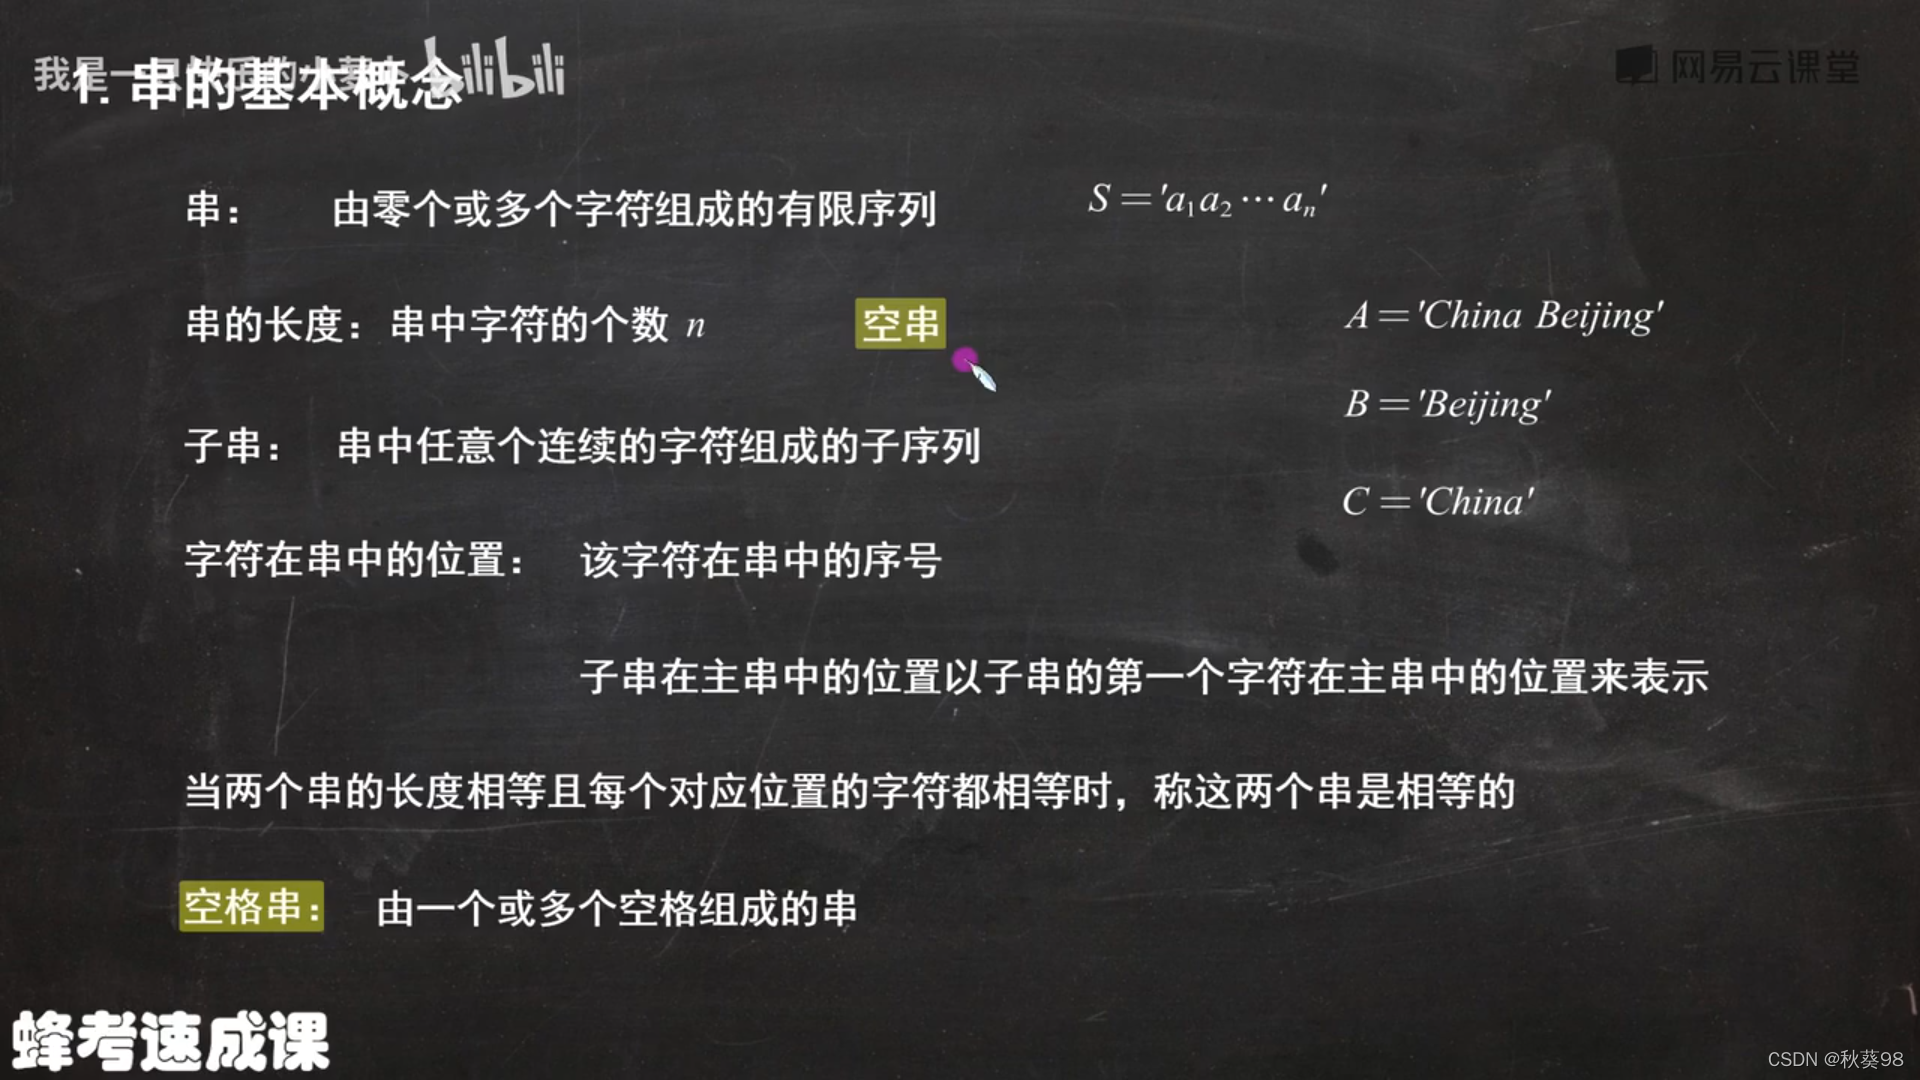 bilibili
1. 串的基本概念
网易云课堂
串： 由零个或多个字符组成的有限序列 S＝'a₁a₂⋯aₙ'
串的长度：串中字符的个数 n 空串
A＝'China Beijing'
B＝'Beijing'
子串： 串中任意个连续的字符组成的子序列
C＝'China'
字符在串中的位置： 该字符在串中的序号
子串在主串中的位置以子串的第一个字符在主串中的位置来表示
当两个串的长度相等且每个对应位置的字符都相等时，称这两个串是相等的
空格串： 由一个或多个空格组成的串
蜂考速成课
CSDN @秋葵98